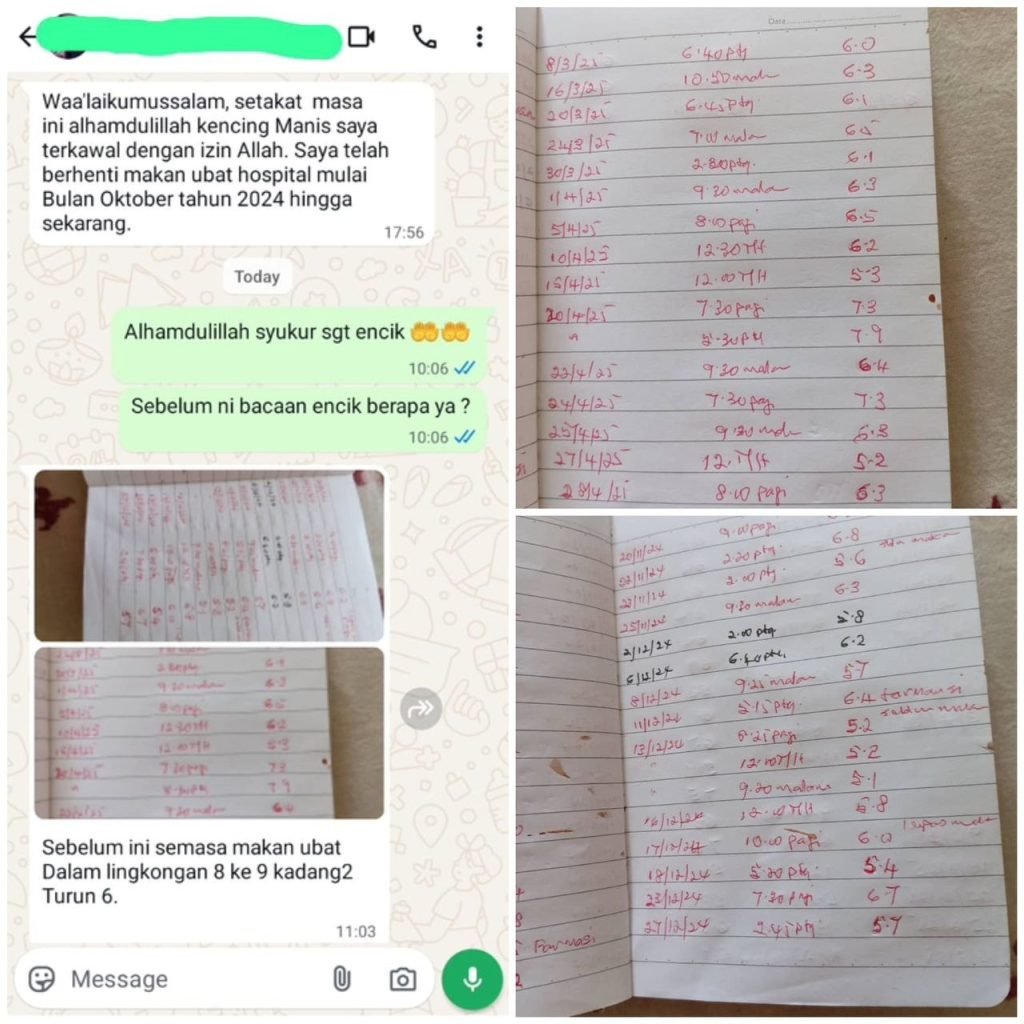 Waa'laikumussalam, setakat masa
ini alhamdulillah kencing Manis saya
terkawal dengan izin Allah. Saya telah
berhenti makan ubat hospital mulai
Bulan Oktober tahun 2024 hingga
sekarang.
17:56
Today
Alhamdulillah syukur sgt encik 🤲🤲
10:06
Sebelum ni bacaan encik berapa ya ?
10:06
Sebelum ini semasa makan ubat
Dalam lingkongan 8 ke 9 kadang2
Turun 6.
11:03
Message
Date
8/3/25 6.40 ptg 6.0
16/3/25 10.50 malam 6.3
20/3/25 6.45 ptg 6.1
24/3/25 7.00 malam 6.5
30/3/25 2.80 ptg. 6.1
1/4/25 9.30 malam 6.3
5/4/25 8.00 pagi 6.5
10/4/25 12.30 T/H 6.2
15/4/25 12.00 T/H 5.3
20/4/25 7.30 pagi 7.3
" 5.30 ptg 7.9
22/4/25 9.30 malam 6.4
24/4/25 7.30 pagi 7.3
25/4/25 9.30 malam
27/4/25 12. T/H 5.2
28/4/25 8.00 pagi 6.3
20/11/24 9.00 pagi 6.8
22/11/24 2.20 ptg. 5.6
2.00 ptg. 6.3
25/11/24 9.30 malam
2/12/24 2.00 ptg 5.8
6/12/24 6.40 ptg. 6.2
8/12/24 9.25 malam 5.7
11/12/24 5.15 ptg. 6.4 farmasi
13/12/24 pagi 5.2
" 12.00 T/H 5.2
" 9.30 malam 5.1
16/12/24 12.00 T/H 5.8
17/12/24 10.00 pagi 6.0
18/12/24 5.30 ptg. 5.4
23/12/24 7.30 pagi 6.7
27/12/24 2.45 ptg 5.7
Farmasi